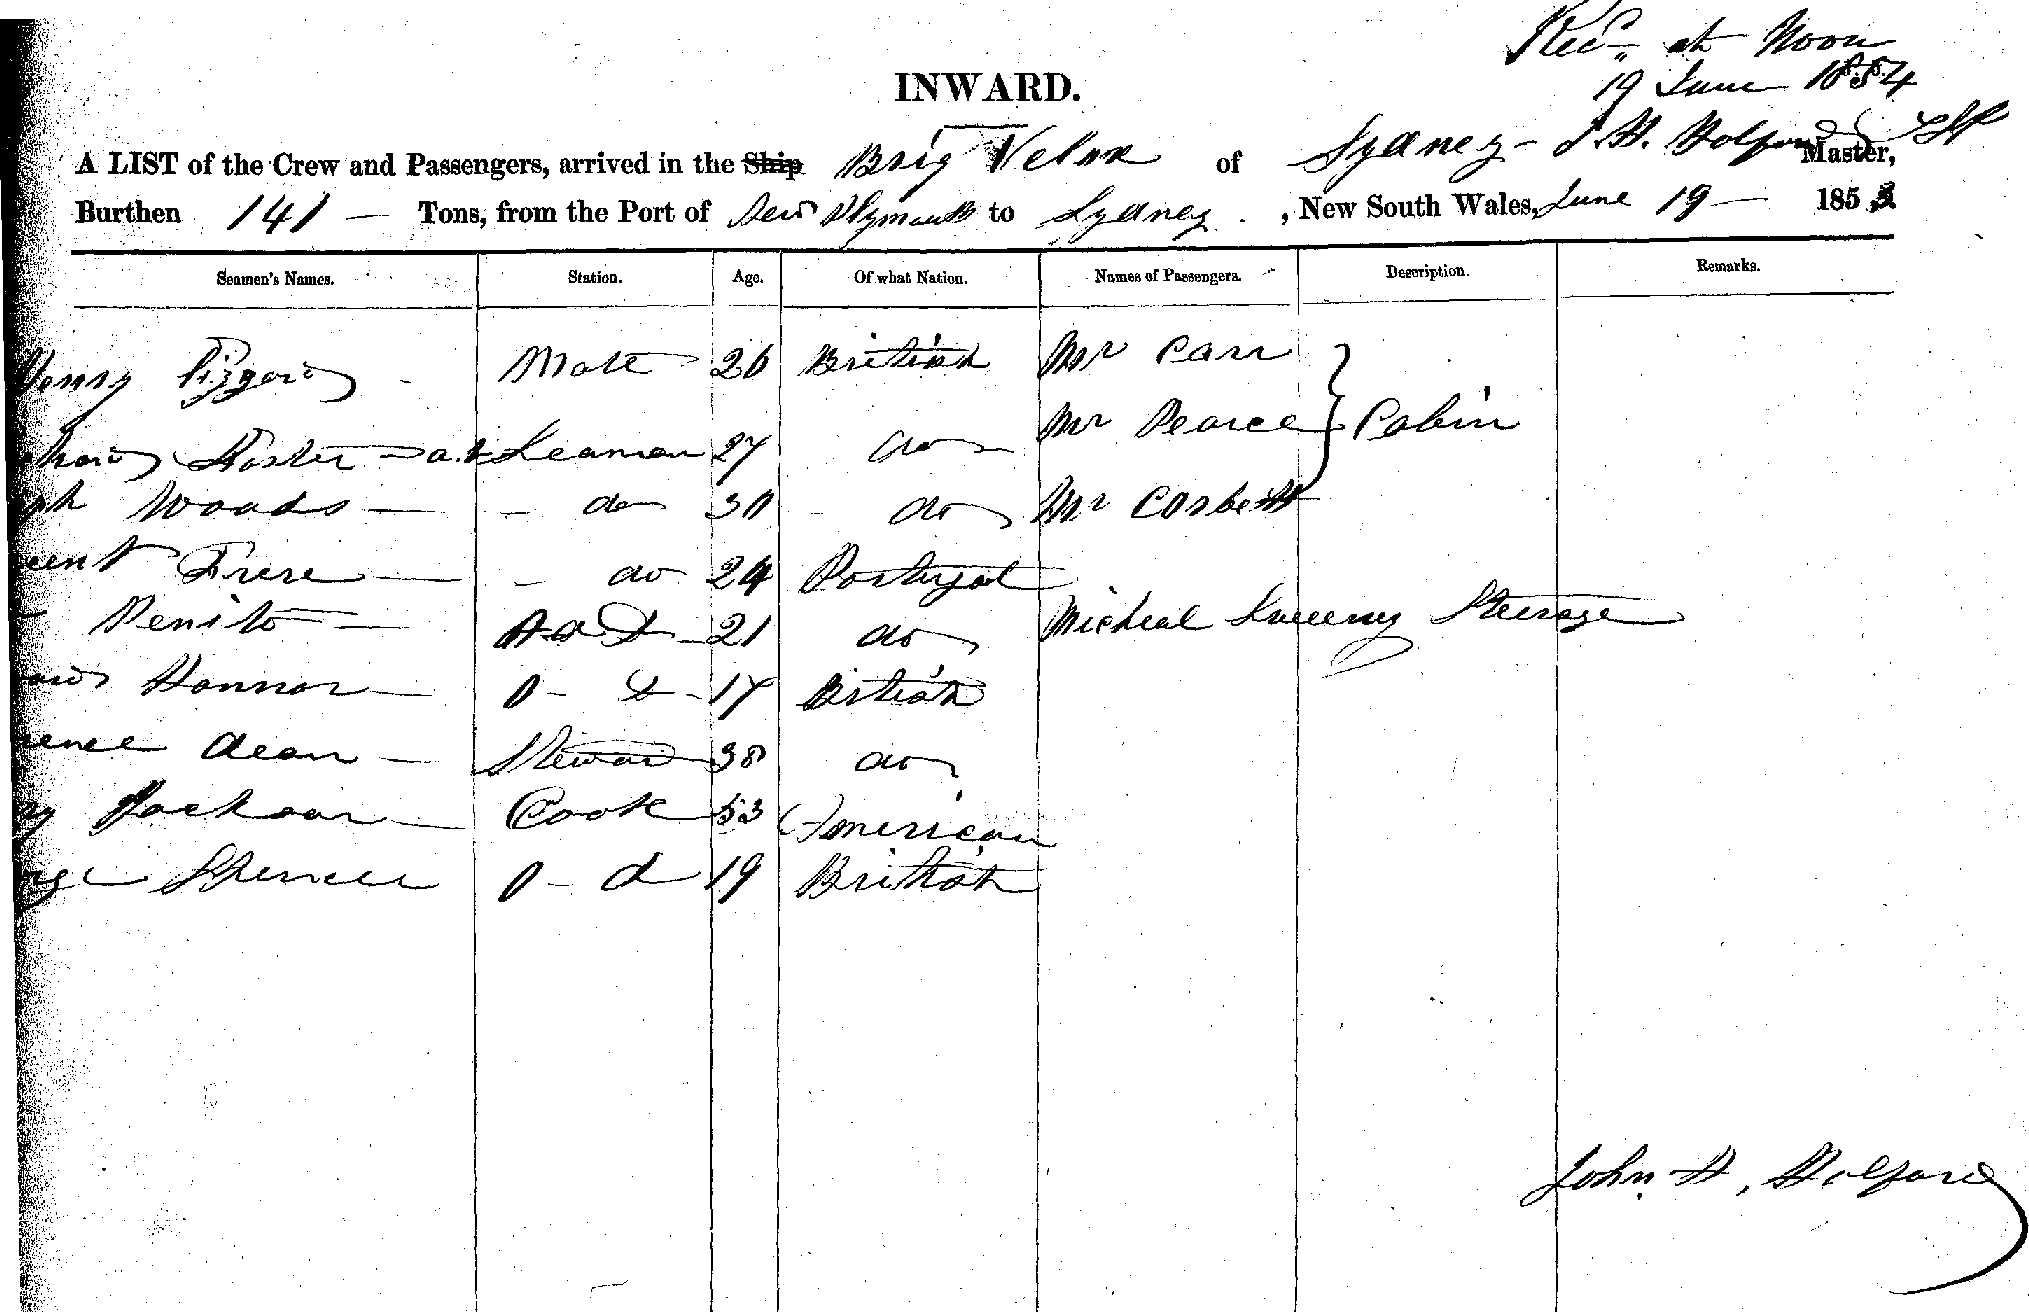 Recd at Noon
19 June 1854
INWARD.
A LIST of the Crew and Passengers, arrived in the Ship Brig Velox of Sydney - J. H. Holford Master,
Burthen 141 - Tons, from the Port of New Plymouth to Sydney, New South Wales, June 19 - 185
Seamen's Names. Station. Age. Of what Nation. Names of Passengers. Description. Remarks.
Henry Mate 26 British Mr Carr
Foster Seaman 27 do Mr Pearce } Cabin
Woods - do 30 - do Mr Corbett
Frere - do 24 Portugal
Benito 21 do Micheal Sweeny Steerage
Hannar O - S - 17 British
Dean Steward 38 do
Jackson Cook 53 American
Spencer O - S 19 British
John H. Holford